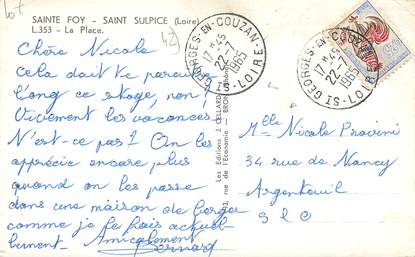 SAINTE FOY - SAINT SULPICE (Loire)
L.353 - La Place.
42
Chère Nicole
Cela doit te paraître
long ce stage, non?
Vivement les vacances.
N'est-ce pas? On les
apprécie encore plus
quand on les passe
dans une maison de berger
comme je le fais actuel-
lement. Amicalement
Bernard
Les Editions J. CELLARD
rue de l'Economie - BRON (Rhône)
GEORGES-EN-COUZAN
17H45
22-7
1965
LOIRE
GEORGES-EN-COUZAN
17H45
22-7
1965
LOIRE
Mlle Nicole Provini
34 rue de Nancy
Argenteuil
S & O